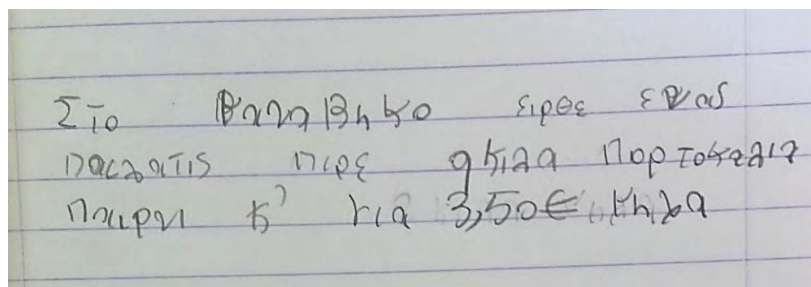 Στο μαναβηκο ειρθε ενας
πελατις πιρε 9 κιλα πορτοκαλια
παιρνι κ' για 3,50€ μηλα